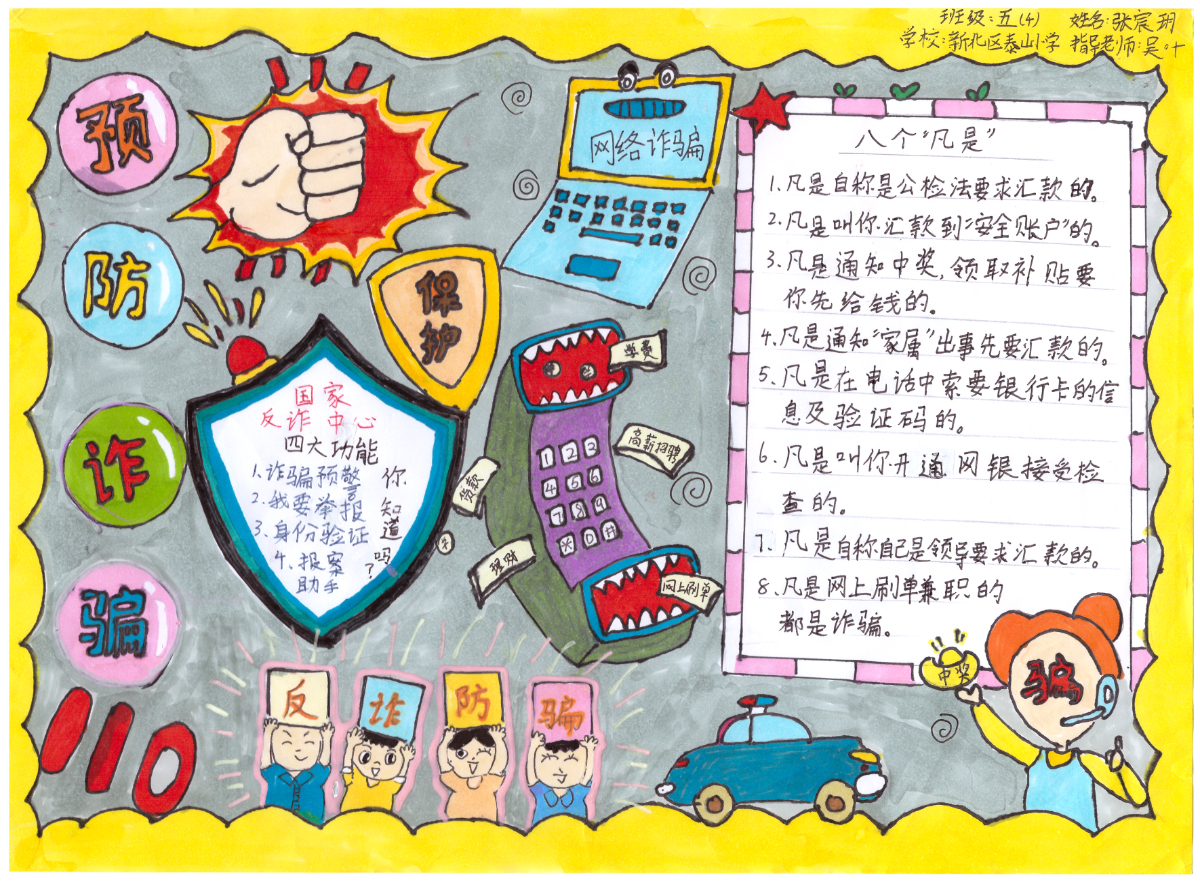 班级:五(4) 姓名:张宸玥
学校:新北区泰山小学 指导老师:吴叶
预
防
诈
骗
110
保
护
网络诈骗
国家
反诈中心
四大功能
1.诈骗预警
2.我要举报
3.身份验证
4.报案
助手
你
知
道
吗
?
学费
高薪招聘
贷款
理财
网上刷单
1 2 3
4 5 6
7 8 9
* 0 #
八个“凡是”
1.凡是自称是公检法要求汇款的。
2.凡是叫你汇款到“安全账户”的。
3.凡是通知中奖,领取补贴要
你先给钱的。
4.凡是通知“家属”出事先要汇款的。
5.凡是在电话中索要银行卡的信
息及验证码的。
6.凡是叫你开通网银接受检
查的。
7.凡是自称自己是领导要求汇款的。
8.凡是网上刷单兼职的
都是诈骗。
反
诈
防
骗
中奖
骗